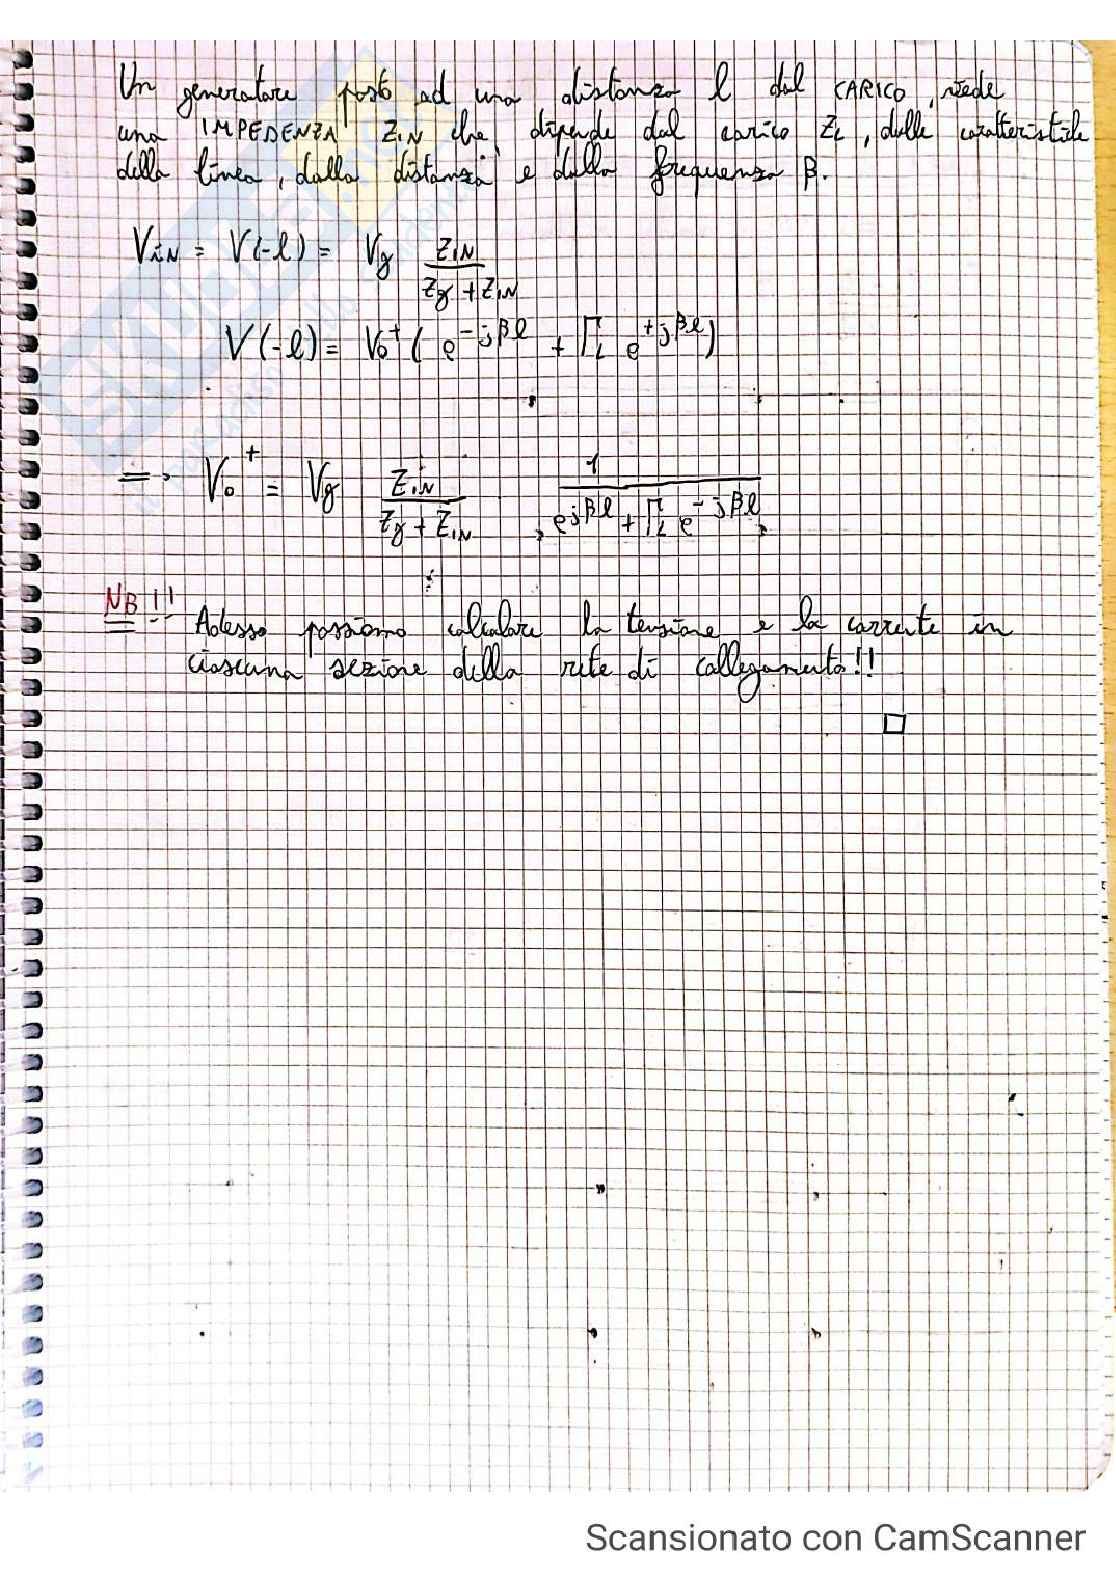 Un generatore posto ad una distanza l dal CARICO, vede
una IMPEDENZA Z_IN che dipende dal carico Z_L, dalle caratteristiche
della linea, dalla distanza e dalla frequenza β.
V_iN = V(-l) = V_g Z_IN / (Z_g + Z_IN)
V(-l) = V_0^+ ( e^{-jβl} + Γ_L e^{+jβl} )
=> V_0^+ = V_g Z_iN / (Z_g + Z_IN) 1 / (e^{jβl} + Γ_L e^{-jβl})
NB!!! Adesso possiamo calcolare la tensione e la corrente in
ciascuna sezione della rete di collegamento!!
Scansionato con CamScanner